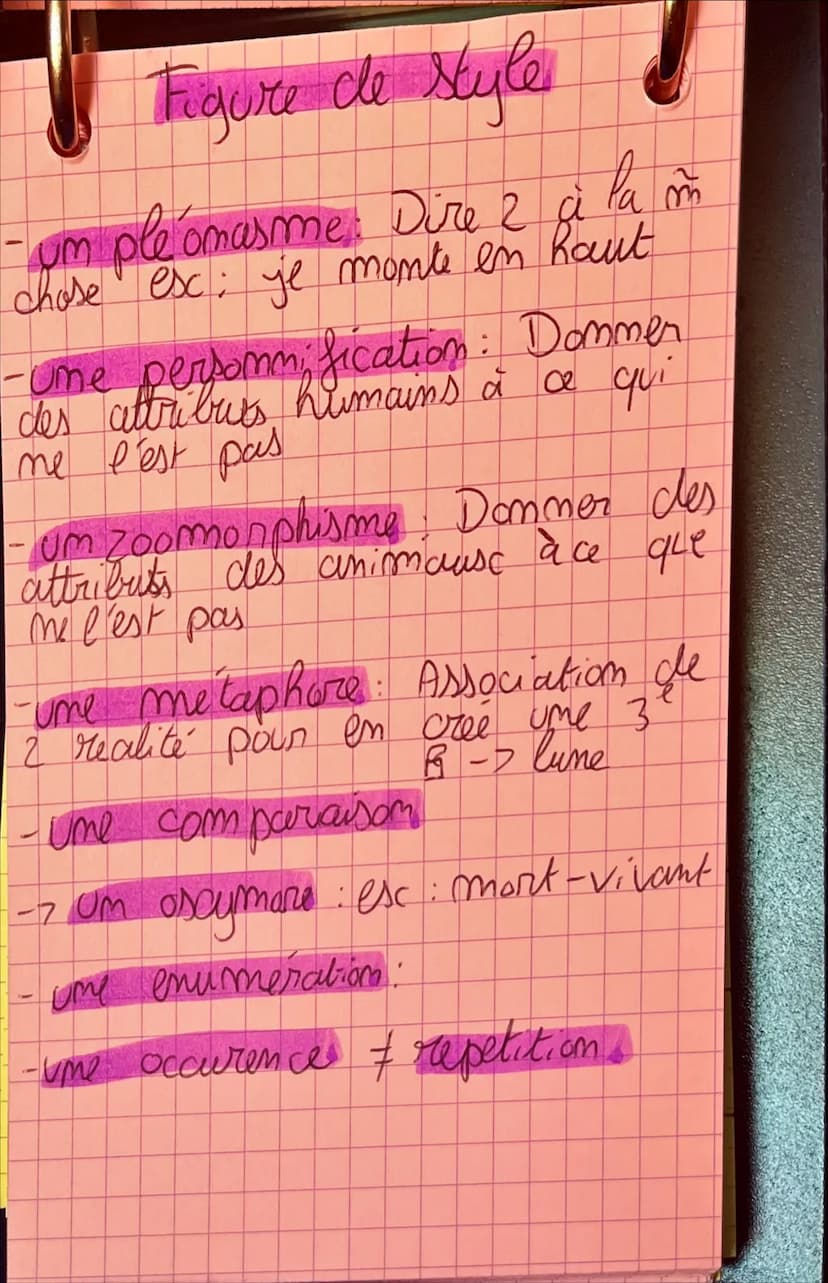 Figure de style
- un pléonasme : Dire 2 à la m̃
chose ex : je monte en haut
- une personnification : Donner
des attributs humains à ce qui
ne l'est pas
- un zoomorphisme : Donner des
attributs des animaux à ce que
ne l'est pas
- une métaphore : Association de
2 realité pour en creé une 3e
-> lune
- une comparaison
-> un oxymore : ex : mort-vivant
- une enumération :
- une occurence ≠ repetition